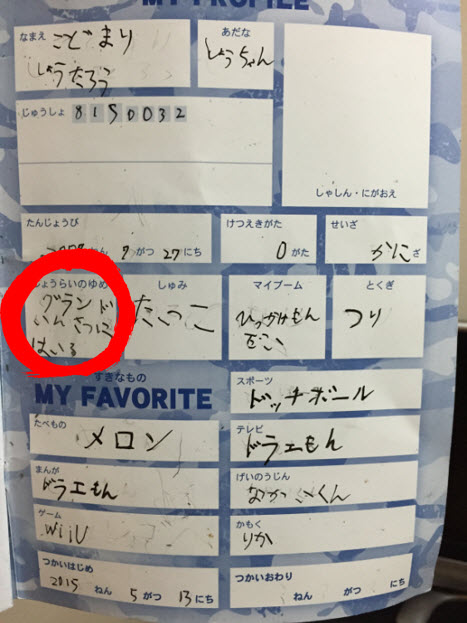 MY PROFILE
なまえ
こどまり
しょうたろう
あだな
しょうちゃん
じゅうしょ 8150032
しゃしん・にがおえ
たんじょうび
ねん 7がつ 27にち
けつえきがた
Oがた
せいざ
かにざ
しょうらいのゆめ
グランド
いんさつに
はいる
しゅみ
たっこ
マイブーム
ひっかけもん
だい
とくぎ
つり
すきなもの
MY FAVORITE
スポーツ
ドッチボール
たべもの
メロン
テレビ
ドラエもん
まんが
ドラエもん
げいのうじん
くん
ゲーム
wiiU
かもく
りか
つかいはじめ
2015ねん 5がつ 13にち
つかいおわり
ねん がつ にち